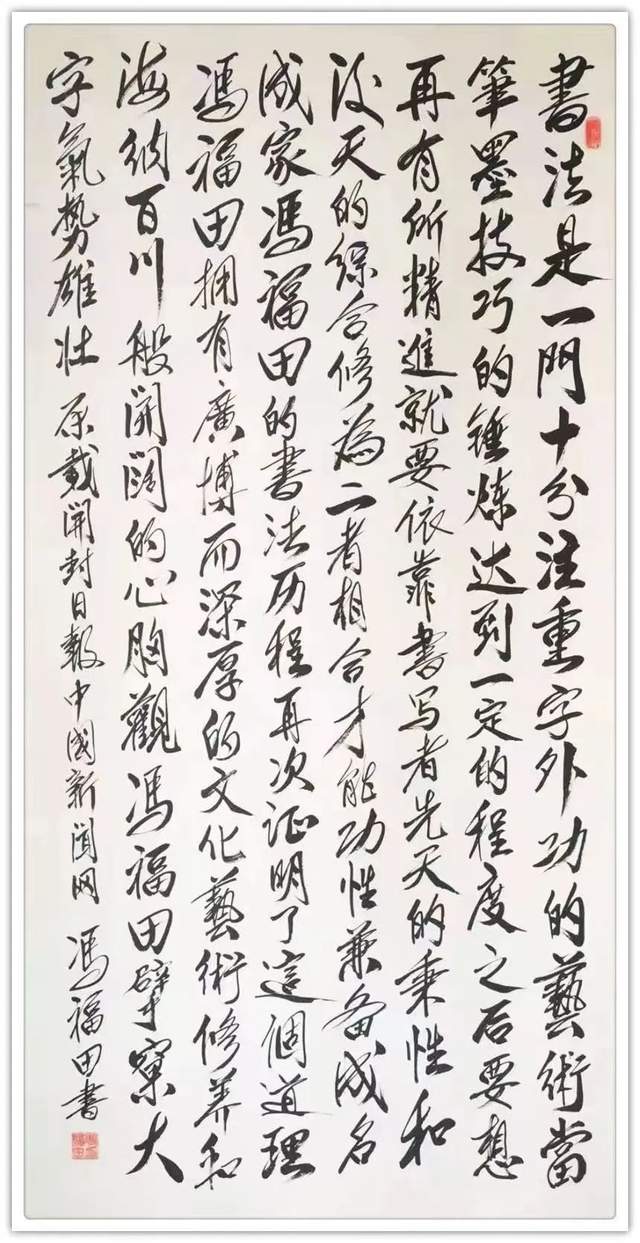 書法是一門十分注重字外功的藝術當
筆墨技巧的锤炼达到一定的程度之后要想
再有所精進就要依靠書写者先天的秉性和
後天的综合修為二者相合才能功性兼备成名
成家馮福田的書法历程再次证明了這個道理
馮福田拥有廣博而深厚的文化藝術修养和
海纳百川般開阔的心胸觀馮福田擘窠大
字氣勢雄壮 原载開封日報中國新闻网 馮福田書